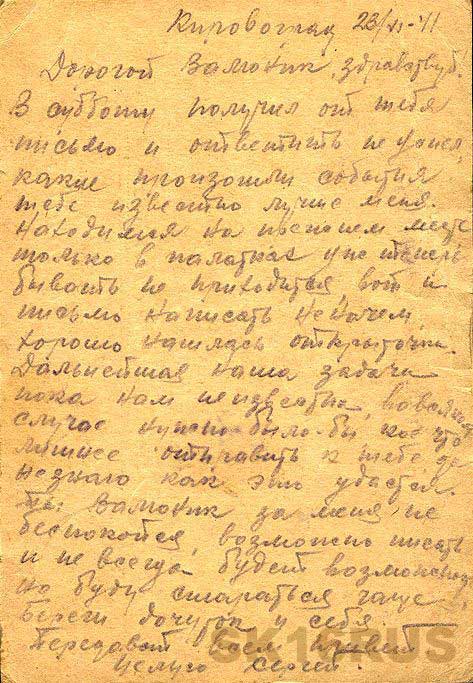 Кировоград 23/VI-41
Дорогой Валюник, здравствуй!
В субботу получил от тебя
письмо и ответить не успел,
какие произошли события
тебе известно лучше меня.
Находимся на прежнем месте
только в палатках уже
бывать не приходится, вот и
письмо написать не на чем,
хорошо нашлась открыточка.
Дальнейшая наша задача
пока нам неизвестна, во всяком
случае нужно было бы кое что
лишнее отправить к тебе, да
незнаю как это удастся.
Ты Валюник за меня не
беспокойся, возможно писать
и не всегда будет возможность
но буду стараться чаще
Береги дочурок и себя.
Передавай всем привет
Целую Сергей.
SK16RUS